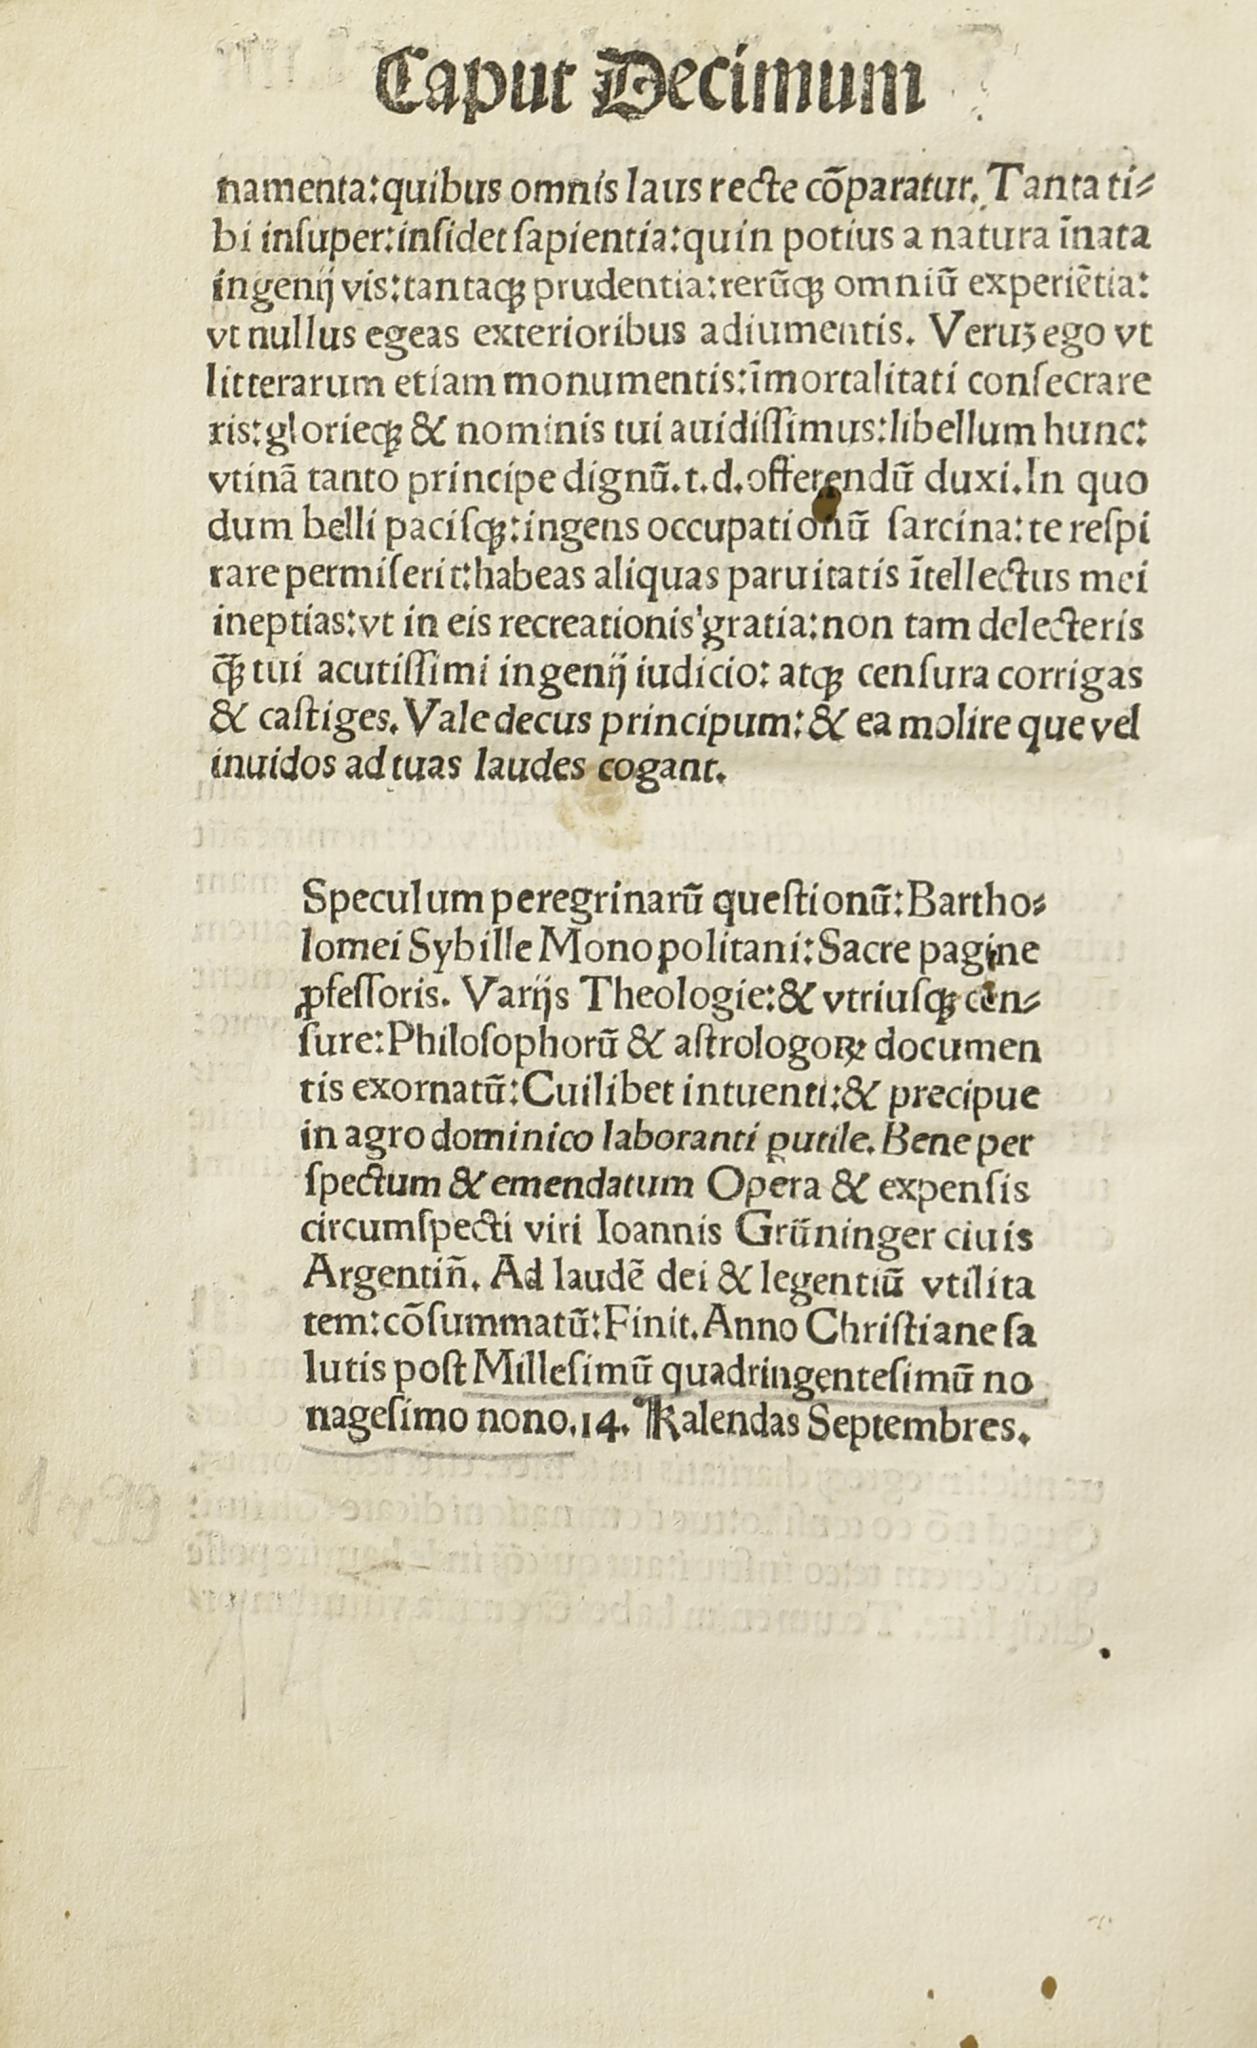 Caput Decimum
namenta:quibus omnis laus recte cōparatur. Tanta ti⸗
bi insuper:insidet sapientia:quin potius a natura īnata
ingenij vis:tantaqꝫ prudentia:rerūqꝫ omniū experiētia:
vt nullus egeas exterioribus adiumentis. Veruꝫ ego vt
litterarum etiam monumentis:īmortalitati consecrare
ris:glorieqꝫ & nominis tui auidissimus:libellum hunc:
vtinā tanto principe dignū.t.d.offerendū duxi.In quo
dum belli pacisqꝫ:ingens occupationū sarcina:te respi
rare permiserit:habeas aliquas paruitatis ītellectus mei
ineptias:vt in eis recreationis gratia:non tam delecteris
q̄ꝫ tui acutissimi ingenij iudicio: atqꝫ censura corrigas
& castiges. Vale decus principum:& ea molire que vel
inuidos ad tuas laudes cogant.
Speculum peregrinarū questionū:Bartho⸗
lomei Sybille Monopolitani:Sacre pagine
ꝓfessoris. Varijs Theologie:& vtriusqꝫ cen⸗
sure:Philosophorū & astrologoꝝ documen
tis exornatū:Cuilibet intuenti:& precipue
in agro dominico laboranti ꝑutile. Bene per
spectum & emendatum Opera & expensis
circumspecti viri Ioannis Grüninger ciuis
Argentiñ. Ad laudē dei & legentiū vtilita
tem:cōsummatū:Finit. Anno Christiane sa
lutis post Millesimū quadringentesimū no
nagesimo nono.14. Kalendas Septembres.
1499